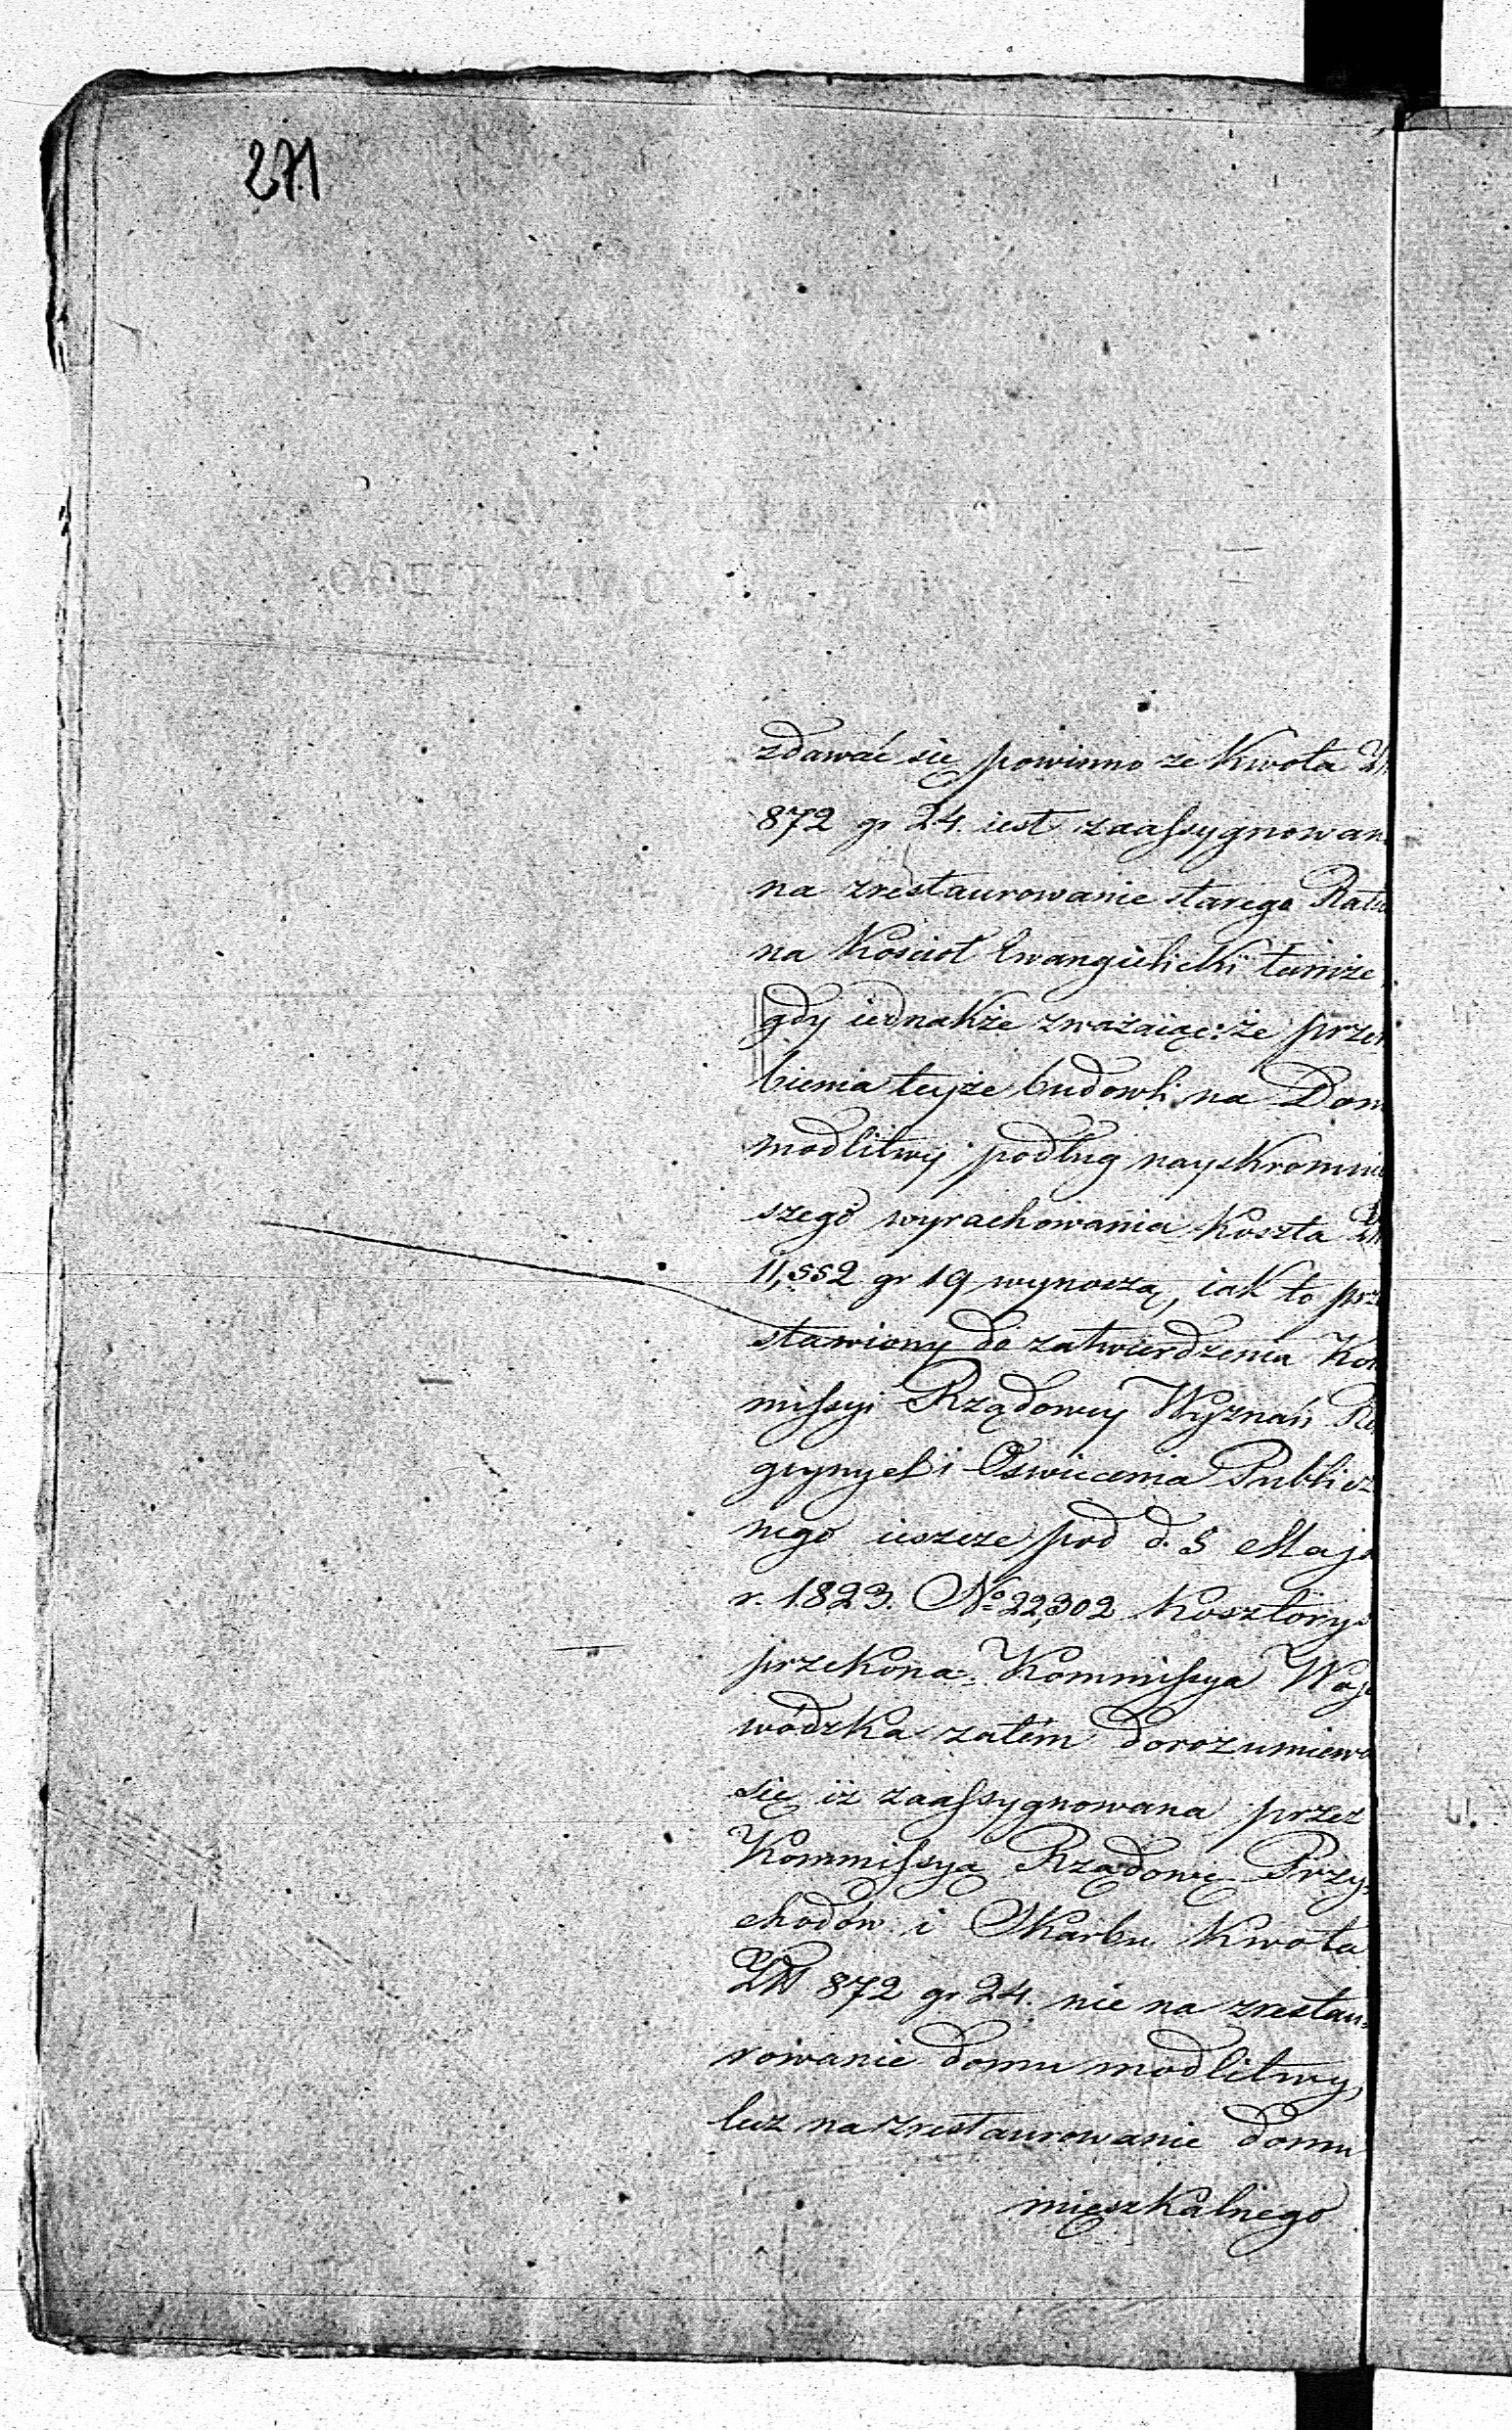 271
zdawać się powinno ze Kwota Zł
872 gr 24. iest zaassygnowan
na zrestaurowanie starego Ratu
na Kościoł Ewangielicki tamże
gdy iednakże zważaiąc: że przer
bienia teyże budowli na Dom
modlitwy podług nayskromni
szego wyrachowania Koszta Zł
11,552 gr 19 wynoszą, iak to prz
stawiony do zatwierdzenia Kom
missyi Rządowey Wyznań Re
giynych i Oswiecenia Publicz
nego ieszcze pod d. 5 Maja
r. 1823. No 22,302 Kosztorys
przekona. Kommissya Woje
wódzka zatém dorozumiewa
się iż zaassygnowana przez
Kommissyą Rządową Przy=
chodów i Skarbu Kwota
Zł 872 gr 24. nie na zrestau=
rowanie domu modlitwy,
lecz na zrestaurowanie domu
mięszkalnego